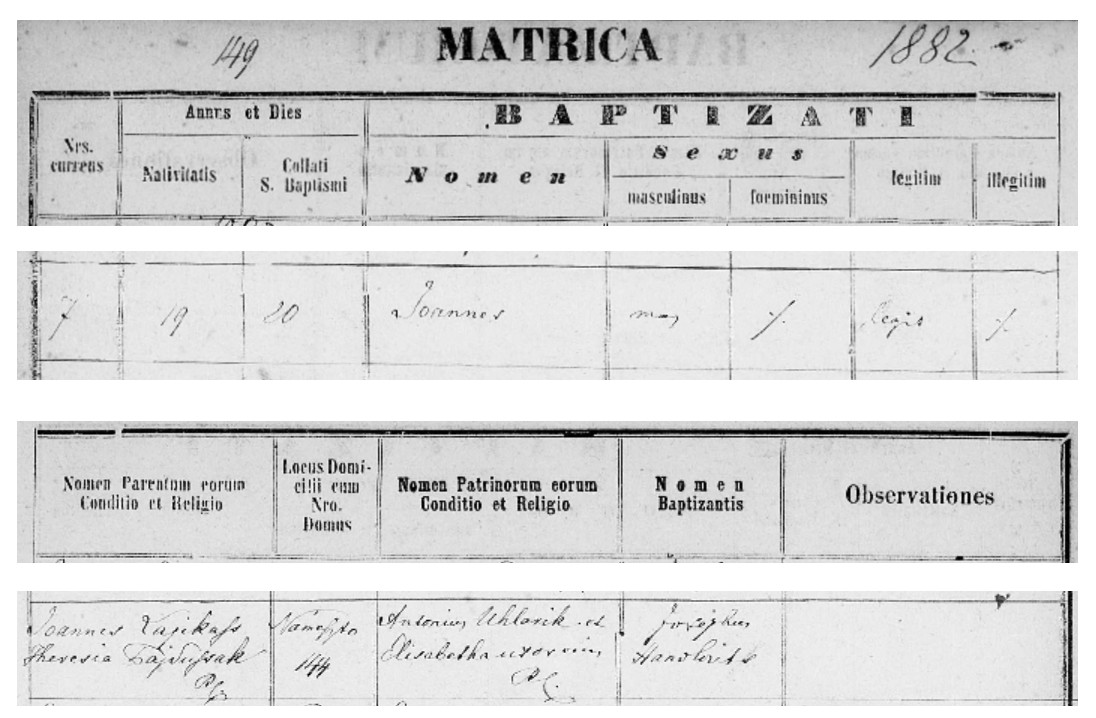 149 MATRICA 1882
Annus et Dies BAPTIZATI
Nrs. currens Nativitatis Collati S. Baptismi Nomen Sexus legitim illegitim
masculinus foemininus
7 19 20 Joannes mas ./. legit ./.
Nomen Parentum eorum Conditio et Religio
Locus Domi-
cilii cum
Nro.
Domus
Nomen Patrinorum eorum
Conditio et Religio
Nomen
Baptizantis
Observationes
Joannes
Theresia
144
Antonius Uhlarik et
Elisabetha uxor eius
Josephus